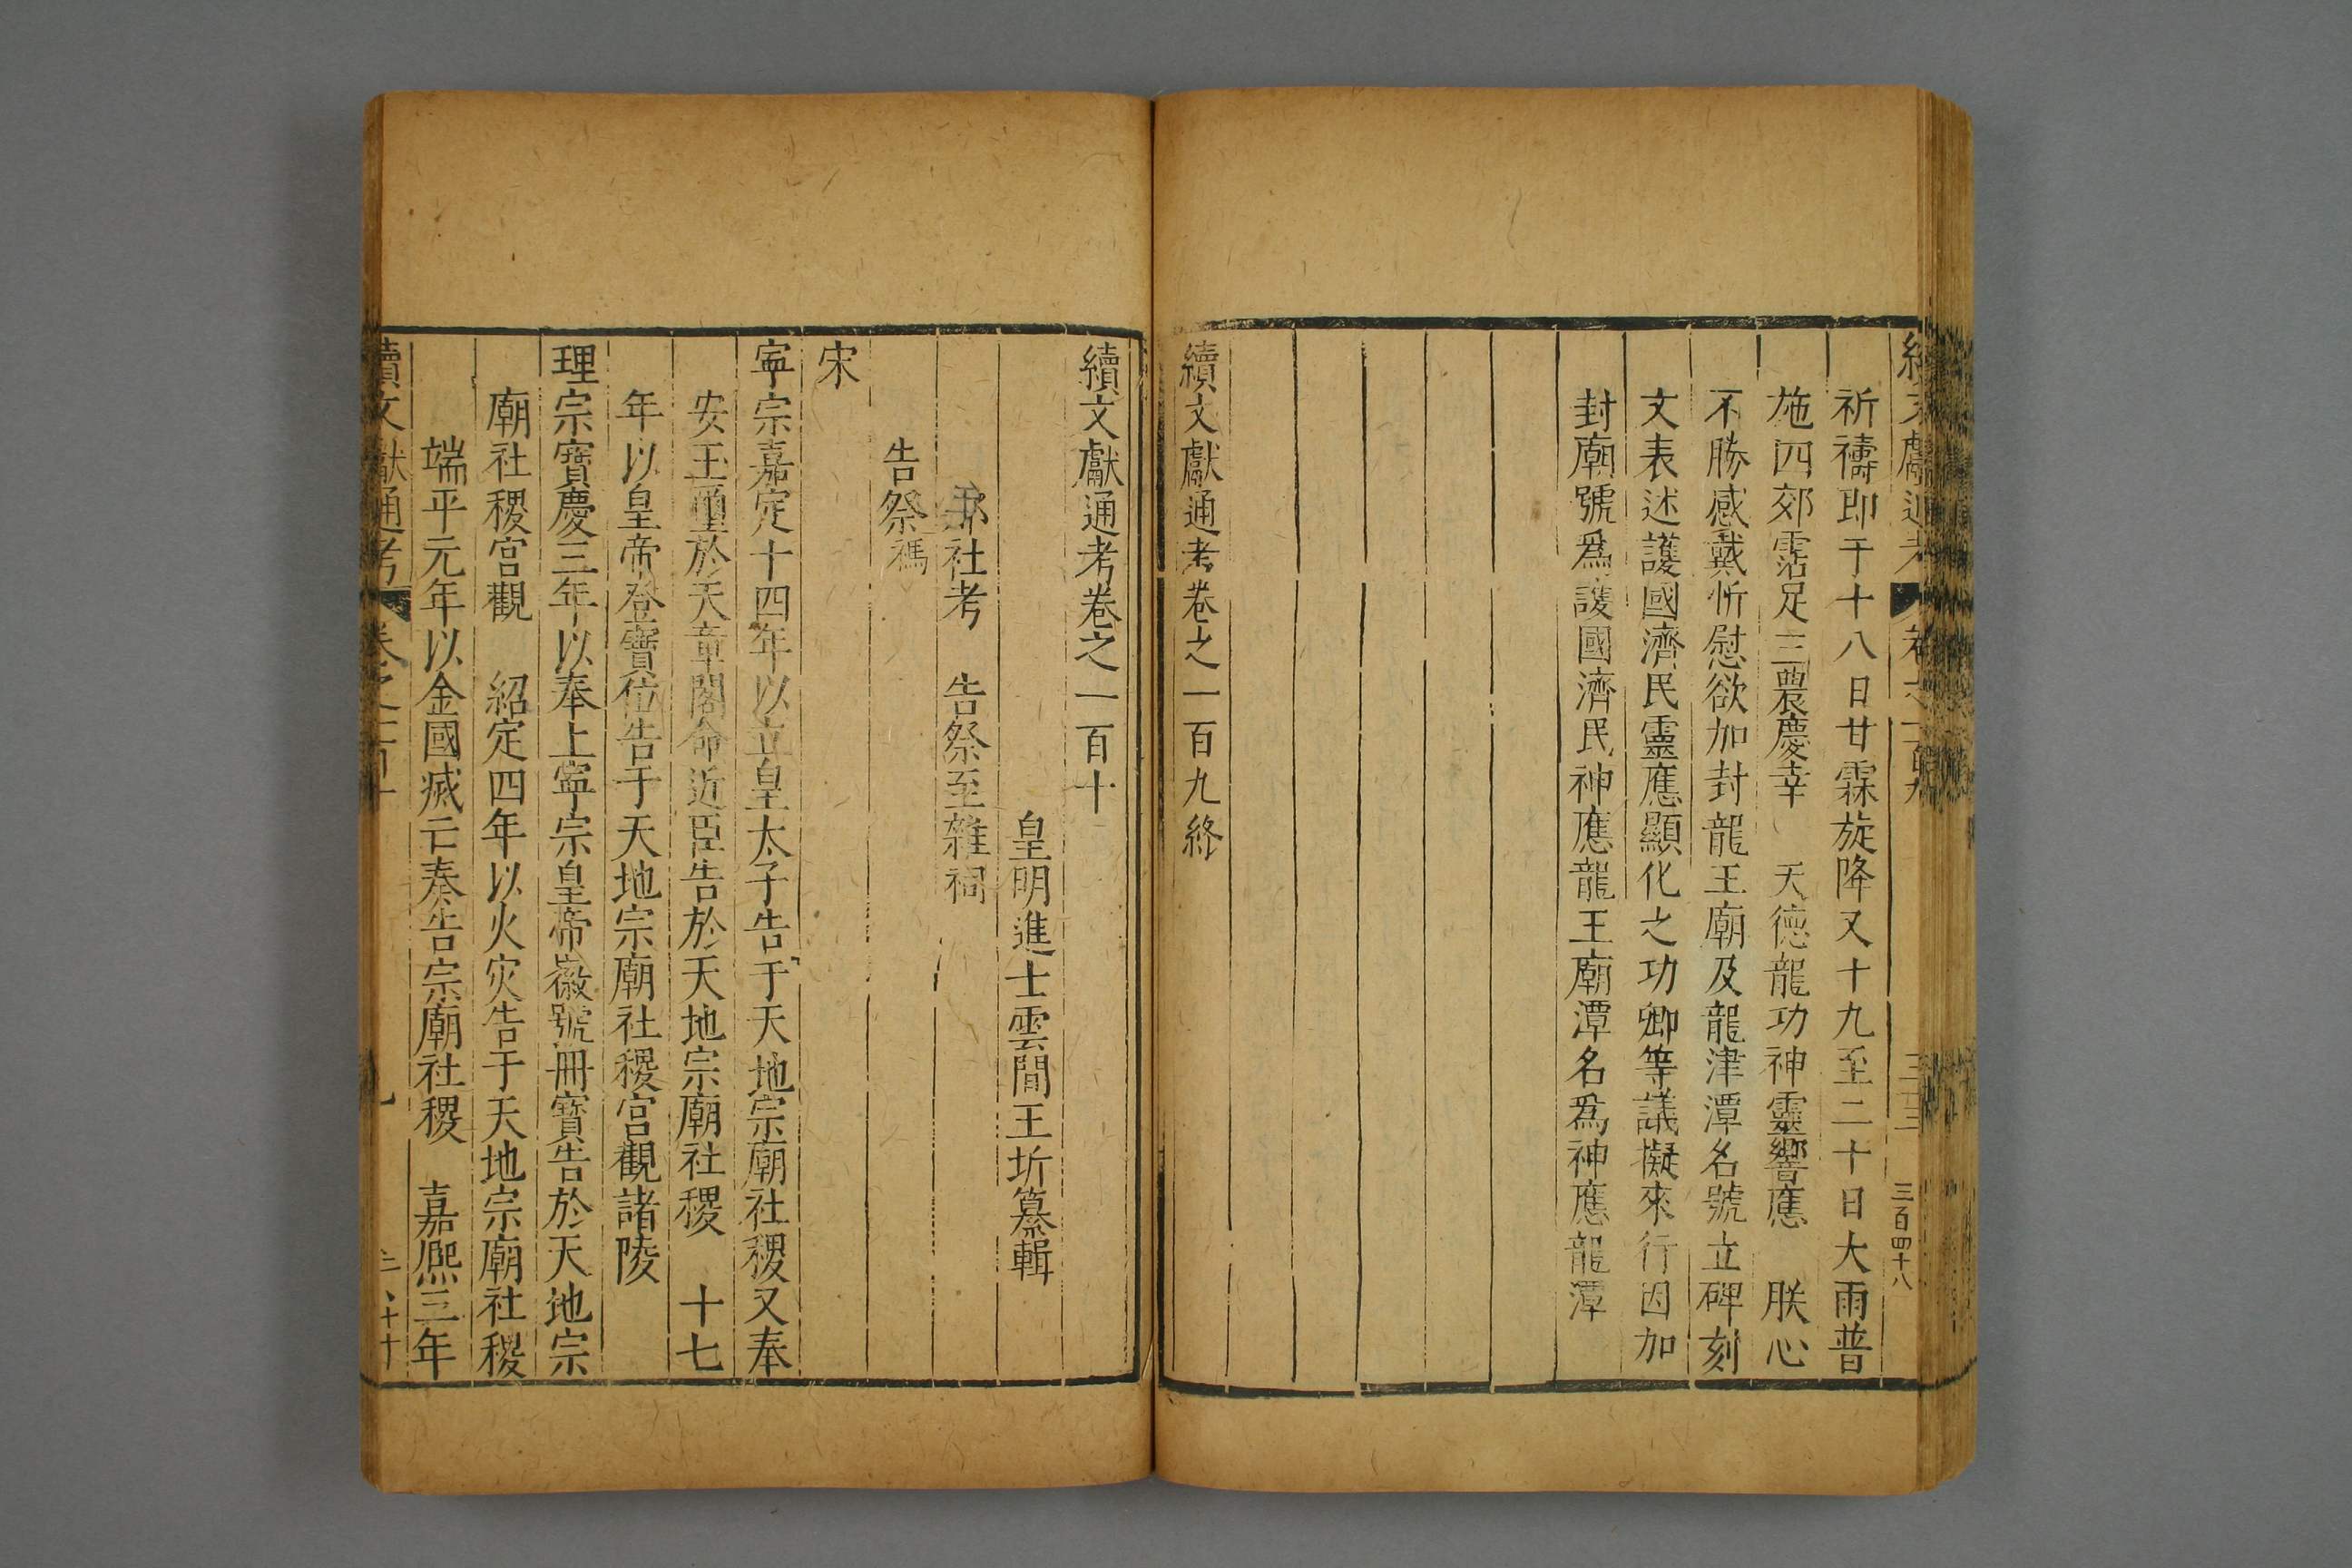 祈禱即于十八日甘霖旋降又十九至二十日大雨普
施四郊霑足三農慶幸　天德龍功神靈響應　朕心
不勝感戴忻慰欲加封龍王廟及龍津潭名號立碑刻
文表述護國濟民靈應顯化之功卿等議擬來行因加
封廟號爲護國濟民神應龍王廟潭名爲神應龍潭
續文獻通考卷之一百九終
續文獻通考卷之一百十
皇明進士雲間王圻纂輯
郊社考　告祭至雜祠
告祭禡
宋
寧宗嘉定十四年以立皇太子告于天地宗廟社稷又奉
安玉璽於天章閣命近臣告於天地宗廟社稷　十七
年以皇帝登寶位告于天地宗廟社稷宮觀諸陵
理宗寶慶三年以奉上寧宗皇帝徽號冊寶告於天地宗
廟社稷宮觀　紹定四年以火灾告于天地宗廟社稷
端平元年以金國滅亡奏告宗廟社稷　嘉熙三年
續文獻通考　卷之一百十